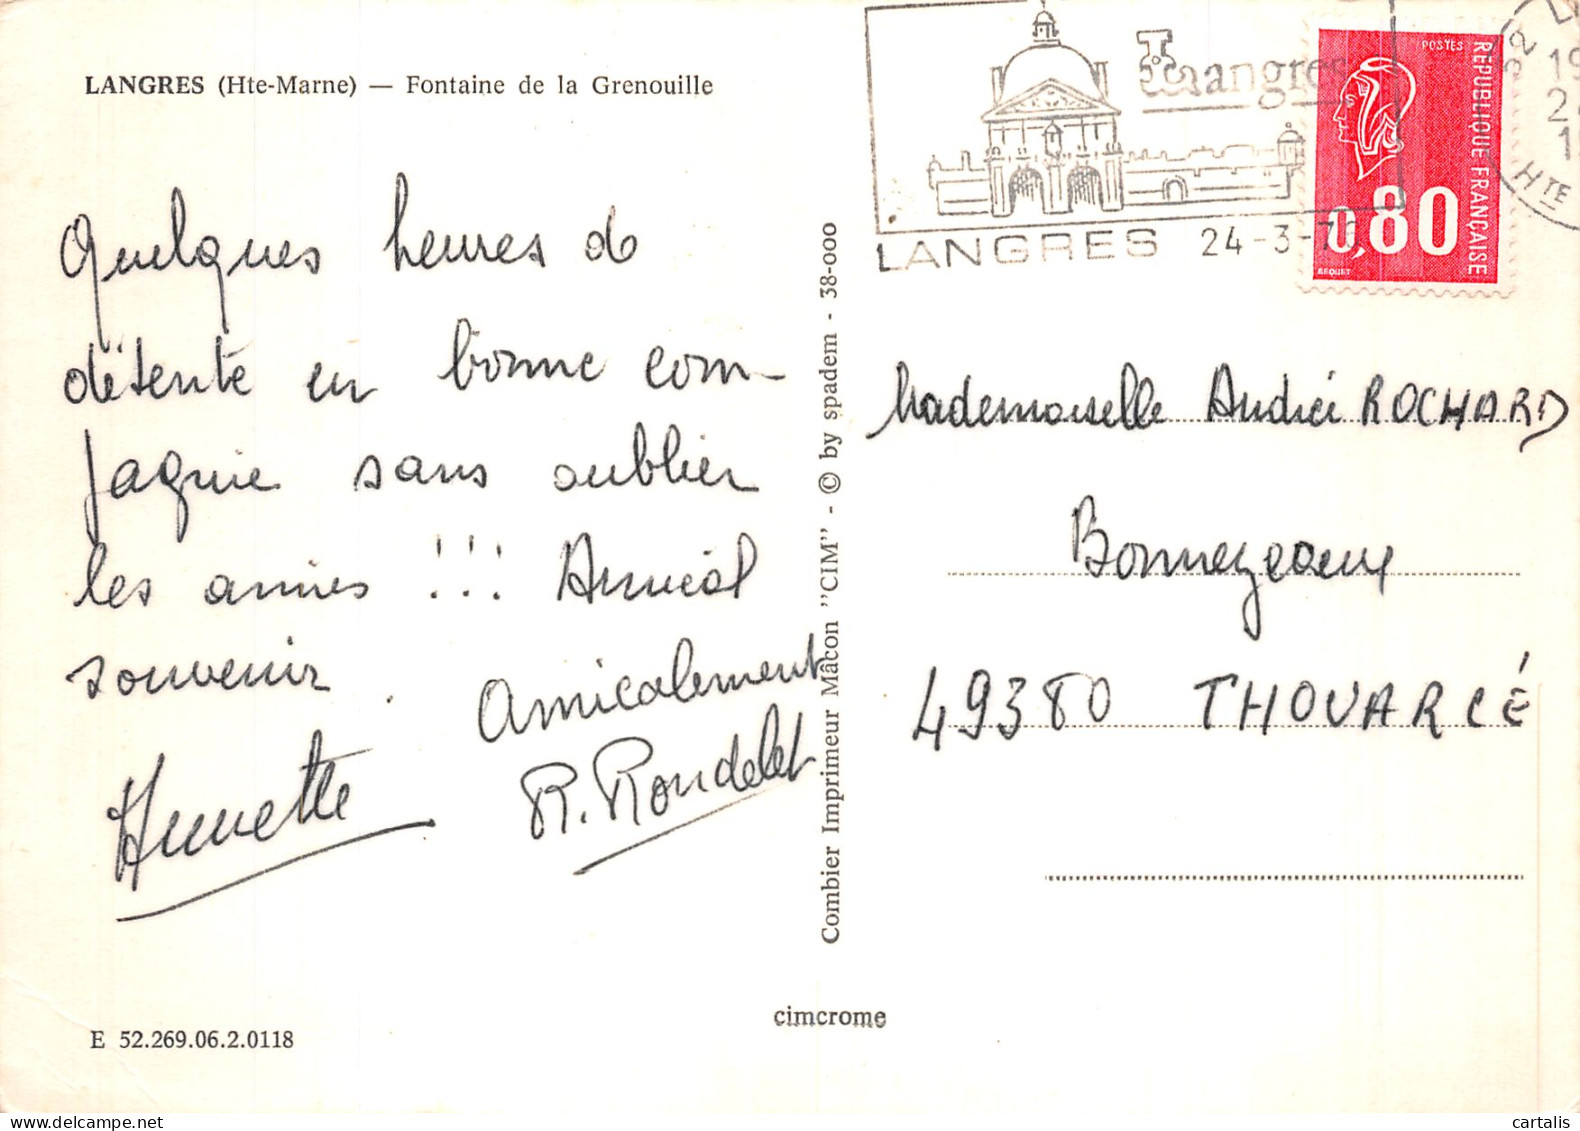 LANGRES (Hte-Marne) — Fontaine de la Grenouille
Quelques heures de
détente en bonne com-
pagnie sans oublier
les amies !!! Amical
souvenir.
Amicalement
R. Rondelet
Combier Imprimeur Mâcon "CIM" - © by spadem - 38-000
cimcrome
E 52.269.06.2.0118
Langres
LANGRES 24-3-7
POSTES
REPUBLIQUE FRANÇAISE
0,80
BEQUET
52 L
19
2
1
HTE
Mademoiselle Andrée ROCHARD
Bonnezeaux
49380 THOUARCÉ
cartalis
delcampe.net